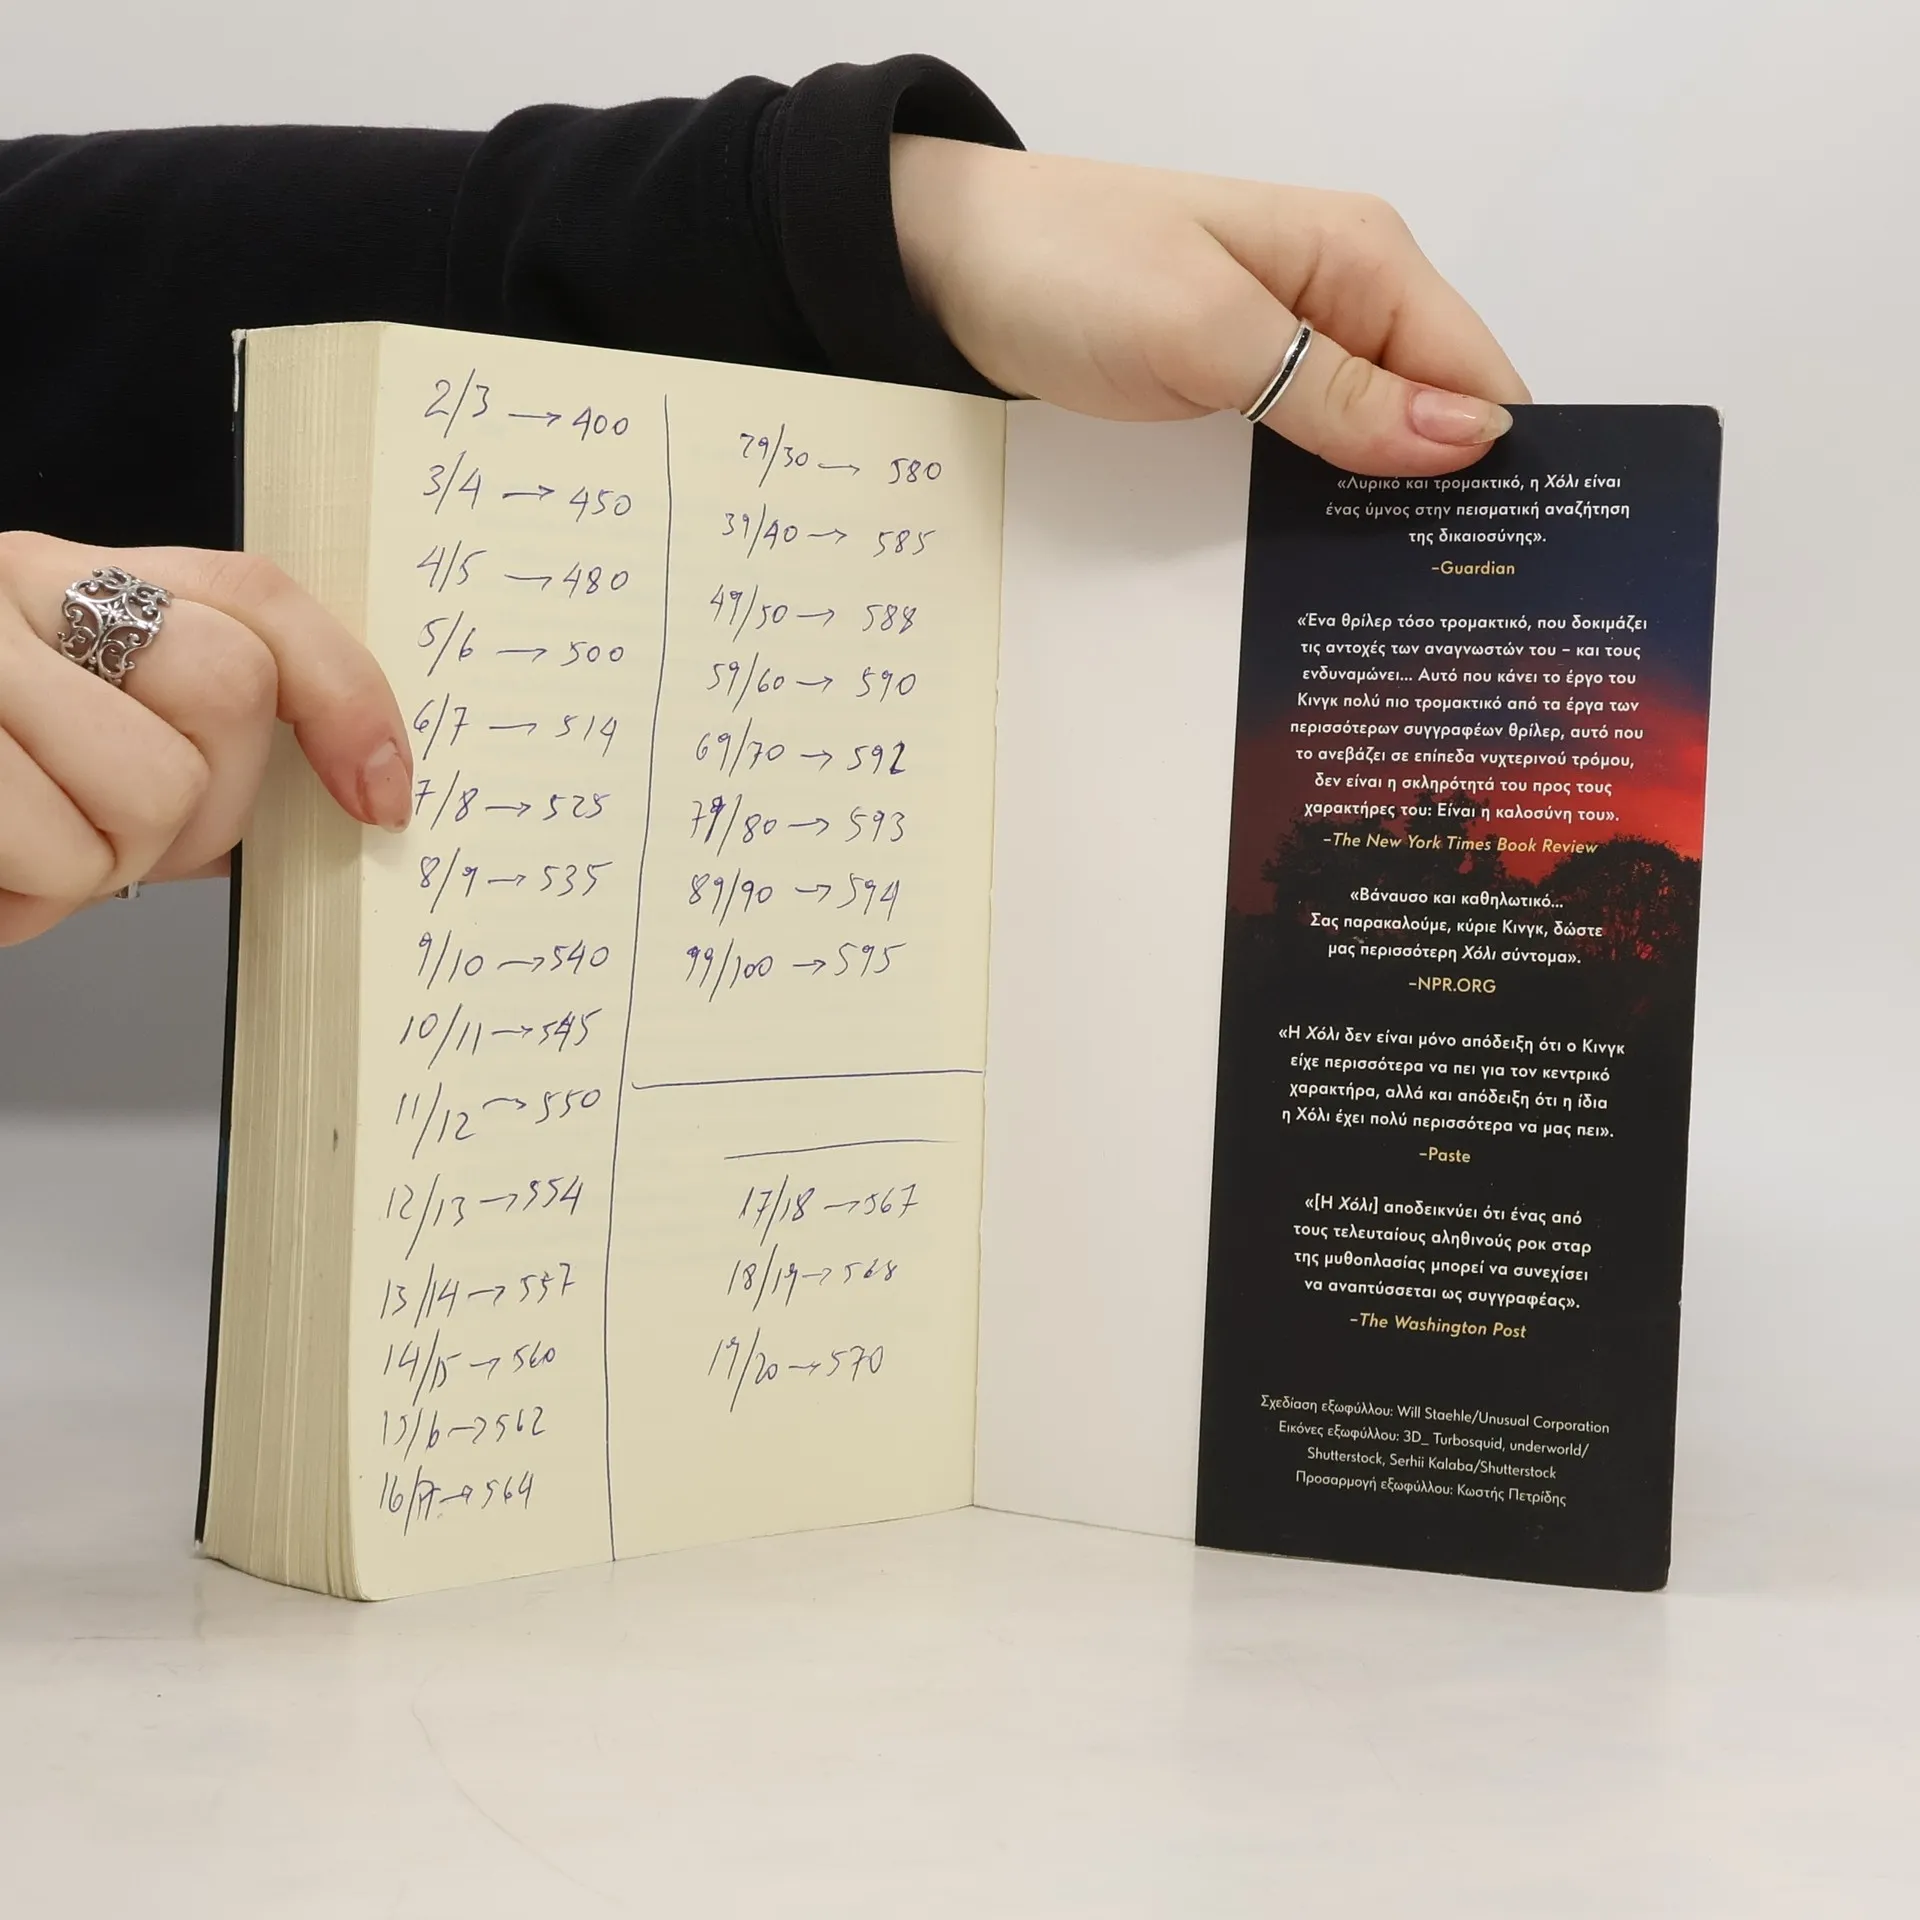 2/3 → 400
3/4 → 450
4/5 → 480
5/6 → 500
6/7 → 514
7/8 → 525
8/9 → 535
9/10 → 540
10/11 → 545
11/12 → 550
12/13 → 554
13/14 → 557
14/15 → 560
15/6 → 562
16/17 → 564
29/30 → 580
39/40 → 585
49/50 → 588
59/60 → 590
69/70 → 592
79/80 → 593
89/90 → 594
99/100 → 595
17/18 → 567
18/19 → 568
19/20 → 570
«Λυρικό και τρομακτικό, η Χόλι είναι
ένας ύμνος στην πεισματική αναζήτηση
της δικαιοσύνης».
–Guardian
«Ένα θρίλερ τόσο τρομακτικό, που δοκιμάζει
τις αντοχές των αναγνωστών του – και τους
ενδυναμώνει... Αυτό που κάνει το έργο του
Κινγκ πολύ πιο τρομακτικό από τα έργα των
περισσότερων συγγραφέων θρίλερ, αυτό που
το ανεβάζει σε επίπεδα νυχτερινού τρόμου,
δεν είναι η σκληρότητά του προς τους
χαρακτήρες του: Είναι η καλοσύνη του».
–The New York Times Book Review
«Βάναυσο και καθηλωτικό...
Σας παρακαλούμε, κύριε Κινγκ, δώστε
μας περισσότερη Χόλι σύντομα».
–NPR.ORG
«Η Χόλι δεν είναι μόνο απόδειξη ότι ο Κινγκ
είχε περισσότερα να πει για τον κεντρικό
χαρακτήρα, αλλά και απόδειξη ότι η ίδια
η Χόλι έχει πολύ περισσότερα να μας πει».
–Paste
«[Η Χόλι] αποδεικνύει ότι ένας από
τους τελευταίους αληθινούς ροκ σταρ
της μυθοπλασίας μπορεί να συνεχίσει
να αναπτύσσεται ως συγγραφέας».
–The Washington Post
Σχεδίαση εξωφύλλου: Will Staehle/Unusual Corporation
Εικόνες εξωφύλλου: 3D_ Turbosquid, underworld/
Shutterstock, Serhii Kalaba/Shutterstock
Προσαρμογή εξωφύλλου: Κωστής Πετρίδης